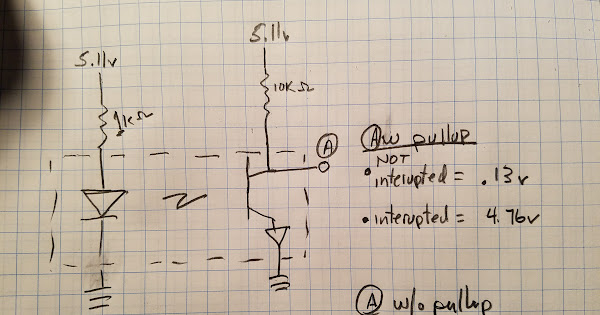 5.11v
5.11v
10KΩ
1KΩ
A
A w pullup
NOT
• interupted = .13v
• interupted = 4.76v
A w/o pullup